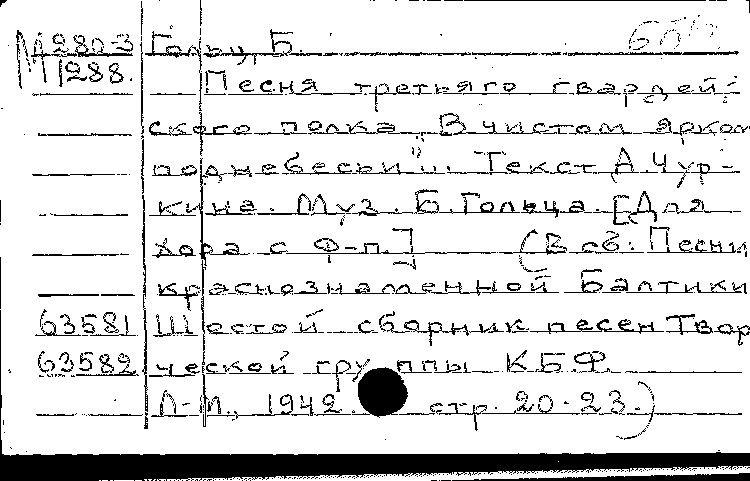 М 280-3 Гольц, Б.
1288. Песня третьяго гвардей-
ского полка „В чистом ярком
поднебесьи". Текст А. Чур-
кина. Муз. Б. Гольца. [Для
хора с ф-п.] (В сб: Песни
краснознаменной Балтики
63581 Шестой сборник песен Твор
63582 ческой группы КБФ.
Л-М., 1942. стр. 20-23.)